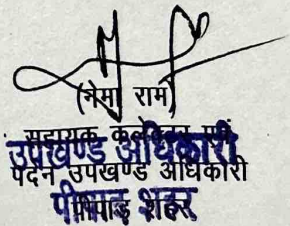 (नेमा राम)
सहायक कलेक्टर एवं
उपखण्ड अधिकारी
पदेन उपखण्ड अधिकारी
पीपाड़ शहर
पीपाड़ शहर